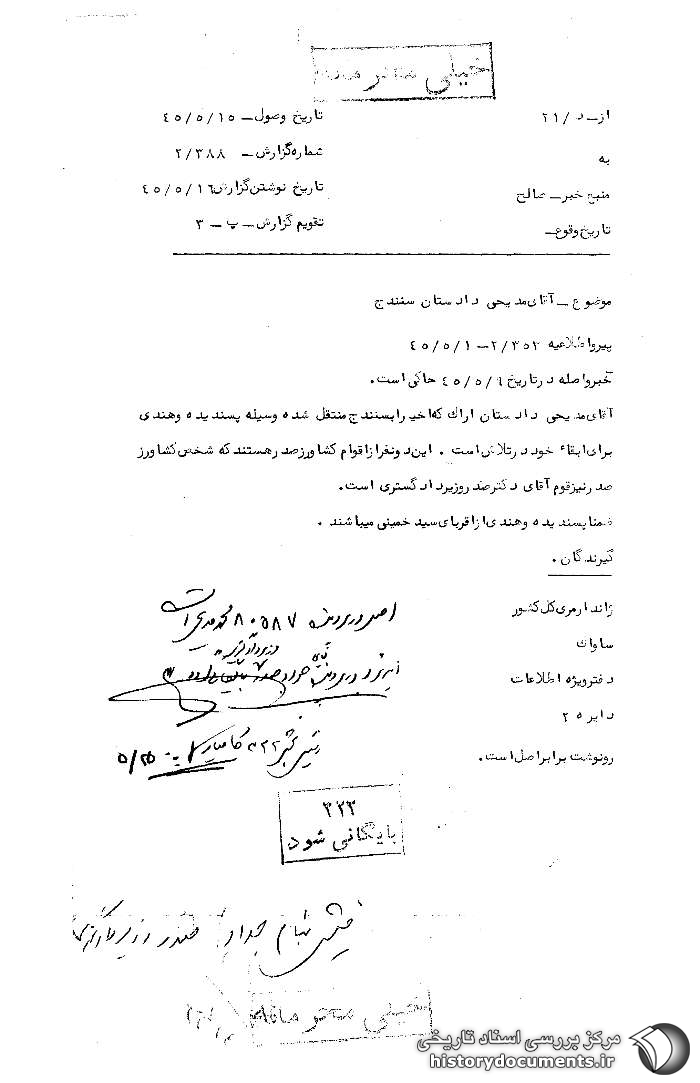 خیلی محرمانه
از ـ د / ۲۱
تاریخ وصول ـ ۴۵/۵/۱۵
به
شماره گزارش ـ ۲/۳۸۸
منبع خبر ـ صالح
تاریخ نوشتن گزارش ۴۵/۵/۱۶
تاریخ وقوع ـ
تقویم گزارش ـ ب ـ ۳
موضوع ـ آقای مدیحی دادستان سنندج
پیرو اطلاعیه ۲/۳۵۲ ـ ۴۵/۵/۱
خبر واصله در تاریخ ۴۵/۵/۹ حاکی است.
آقای مدیحی دادستان اراک که اخیرا بسنندج منتقل شده وسیله پسندیده و هندی
برای ابقاء خود در تلاش است . این دو نفر از اقوام کشاورز صدر هستند که شخص کشاورز
صدر نیز قوم آقای دکتر صدر وزیر دادگستری است.
ضمنا پسندیده و هندی از اقربای سید خمینی میباشند .
گیرندگان .
ژاندارمری کل کشور
ساواک
دفتر ویژه اطلاعات
دایره ۲
رونوشت برابر اصل است.
اصل در پرونده ۸۰۵۸۷
رئیس بخش ۳۲۲ ۵/۲۵
۳۲۳
بایگانی شود
خیلی محرمانه
مرکز بررسی اسناد تاریخی
historydocuments.ir